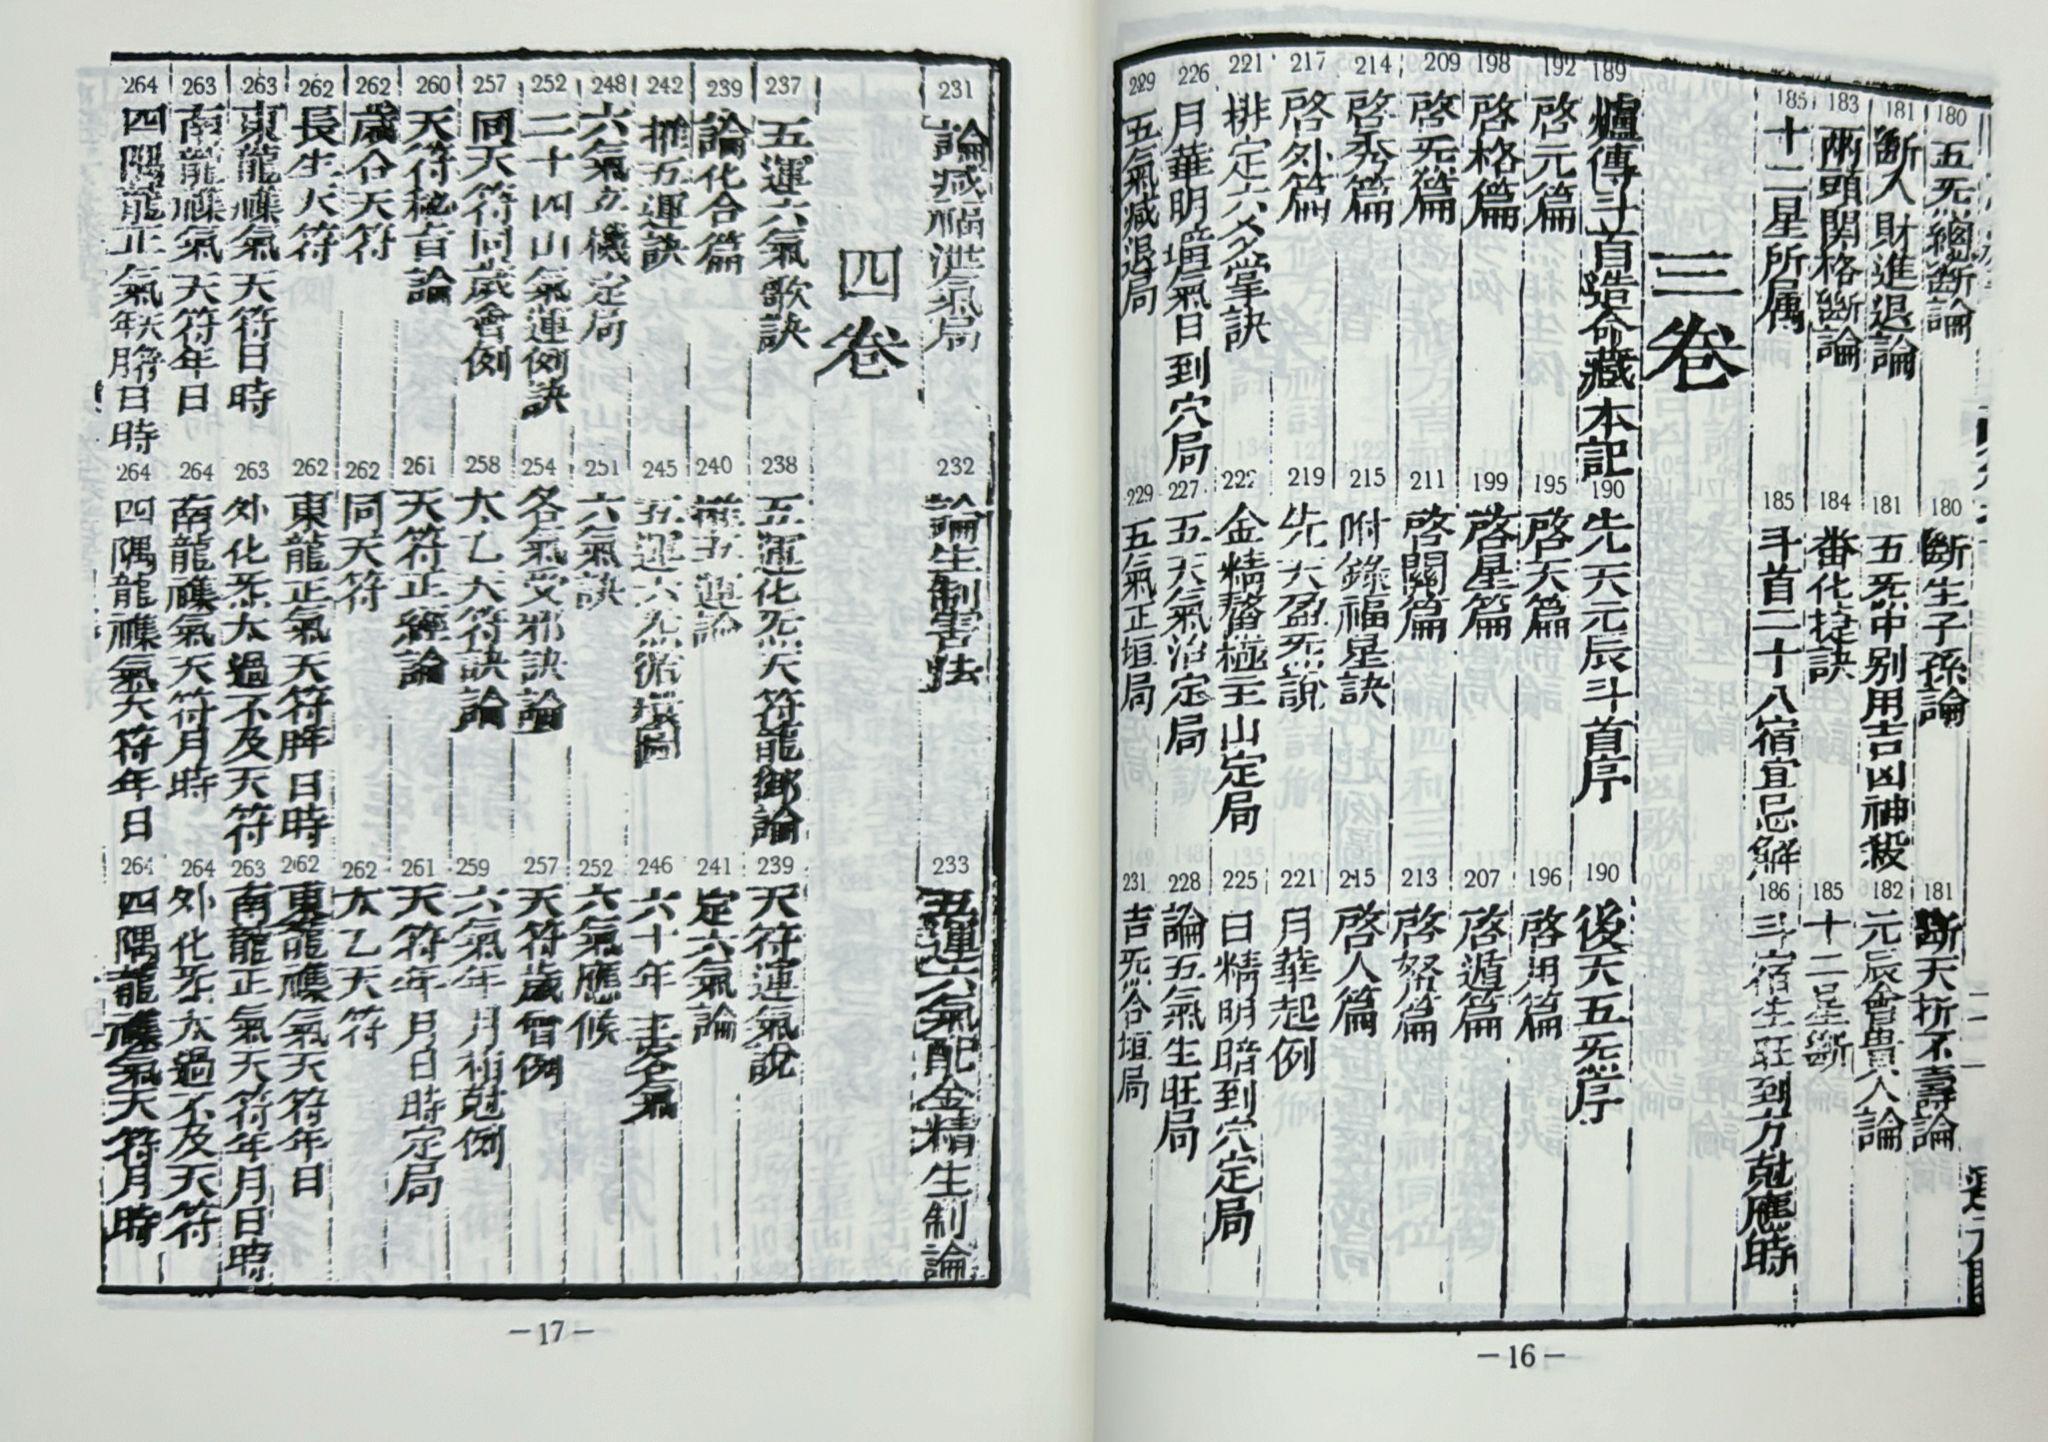 180
五炁總斷論
180
斷生子孫論
181
斷夭折不壽論
181
斷人財進退論
181
五炁中别用吉凶神殺
182
元辰會貴人論
183
兩頭関格斷論
184
番化捷訣
185
十二星斷
185
十二星所属
185
斗首二十八宿宜忌解
186
斗宿生旺到方尅應時
三卷
189
爐傳斗首造命藏本記
190
先天元辰斗首序
190
後天五炁序
192
啓元篇
195
啓天篇
196
啓用篇
198
啓格篇
199
啓星篇
207
啓遁篇
209
啓炁篇
211
啓關篇
213
啓努篇
214
啓秀篇
215
附錄福星訣
215
啓人篇
217
啓外篇
219
先天盈炁說
221
月華起例
221
排定六爻掌訣
222
金精鰲極主山定局
225
日精明暗到穴定局
226
月華明墻氣日到穴局
227
五天氣治定局
228
論五氣生旺局
229
五氣减退局
229
五氣正垣局
231
吉炁合垣局
—16—
231
論减福泄氣局
232
論生制害怯
233
五運六氣配金精生制論
四卷
237
五運六氣歌訣
238
五運化炁天符龍鄉論
239
天符運氣說
239
論化合篇
240
推五運論
241
定六氣論
242
推五運訣
245
五運六炁循環圖
246
六十年主客氣
248
六氣立機定局
251
六氣訣
252
六氣應候
252
二十四山氣運例訣
254
各氣受邪訣論
257
天符歲會例
257
同天符同歲會例
258
太乙天符訣論
259
六氣年月補尅例
260
天符秘旨論
261
天符正經論
261
天符年月日時定局
262
歲合天符
262
同天符
262
太乙天符
262
長生天符
262
東龍正氣天符年日時
262
東龍襍氣天符年日
263
東龍襍氣天符日時
263
外化炁太過不及天符
263
南龍正氣天符年月日時
263
南龍襍氣天符年日
264
南龍襍氣天符月時
264
外化炁太過不及天符
264
四隅龍正氣年天符日時
264
四隅龍襍氣天符年日
264
四隅龍襍氣天符月時
—17—